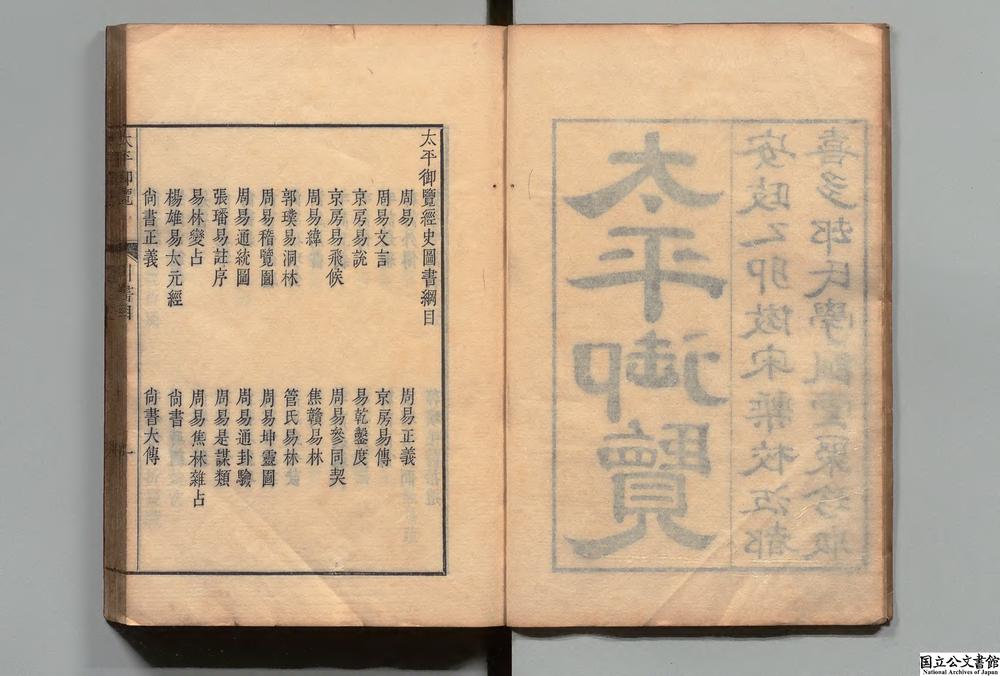 太平御覽
安政乙卯倣宋槧校江都
喜多邨氏學訓堂聚珍版
太平御覽經史圖書綱目
周易　周易正義
周易文言　京房易傳
京房易說　易乾鑿度
京房易飛候　周易參同契
周易緯　焦贛易林
郭璞易洞林　管氏易林
周易稽覽圖　周易坤靈圖
周易通統圖　周易通卦驗
張璠易註序　周易是謀類
易林變占　周易焦林雜占
楊雄易太元經　尙書
尙書正義　尙書大傳
太平御覽　書目　一
国立公文書館
National Archives of Japan